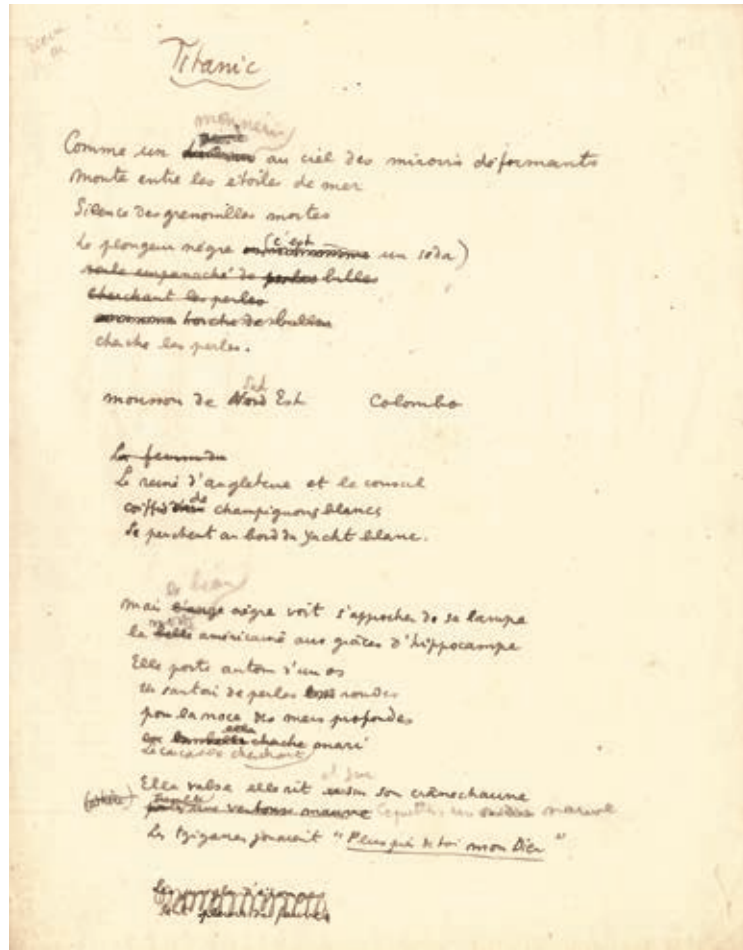 Titanic
monnerie
Comme un au ciel des miroirs déformants
monte entre les étoiles de mer
Silence des grenouilles mortes
Le plongeur nègre (c'est un soda)
empanaché de perles bulles
cherchant les perles
torche de bulles
cherche les perles.
Sud
mousson de Nord Est Colombo
La femme du
La reine d'angleterre et le consul
coiffés de champignons blancs
Se penchent au bord du yacht blanc.
le beau
mais nègre voit s'approcher de sa lampe
morte
la belle américaine aux grâces d'hippocampe
Elle porte autour d'un os
un sautoir de perles rondes
pour la noce des mers profondes
elle cherche mari
cherchant
et sur
Elle valse elle rit son crâne chauve
porte une ventouse mauve
Les tziganes jouaient "Plus près de toi mon Dieu"